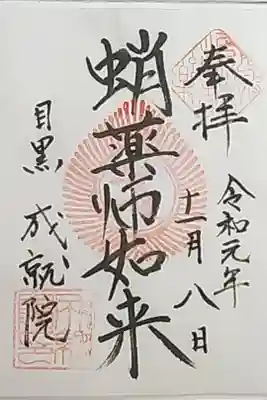 奉拝
令和元年
十一月八日
蛸薬师如来
目黒 成就院